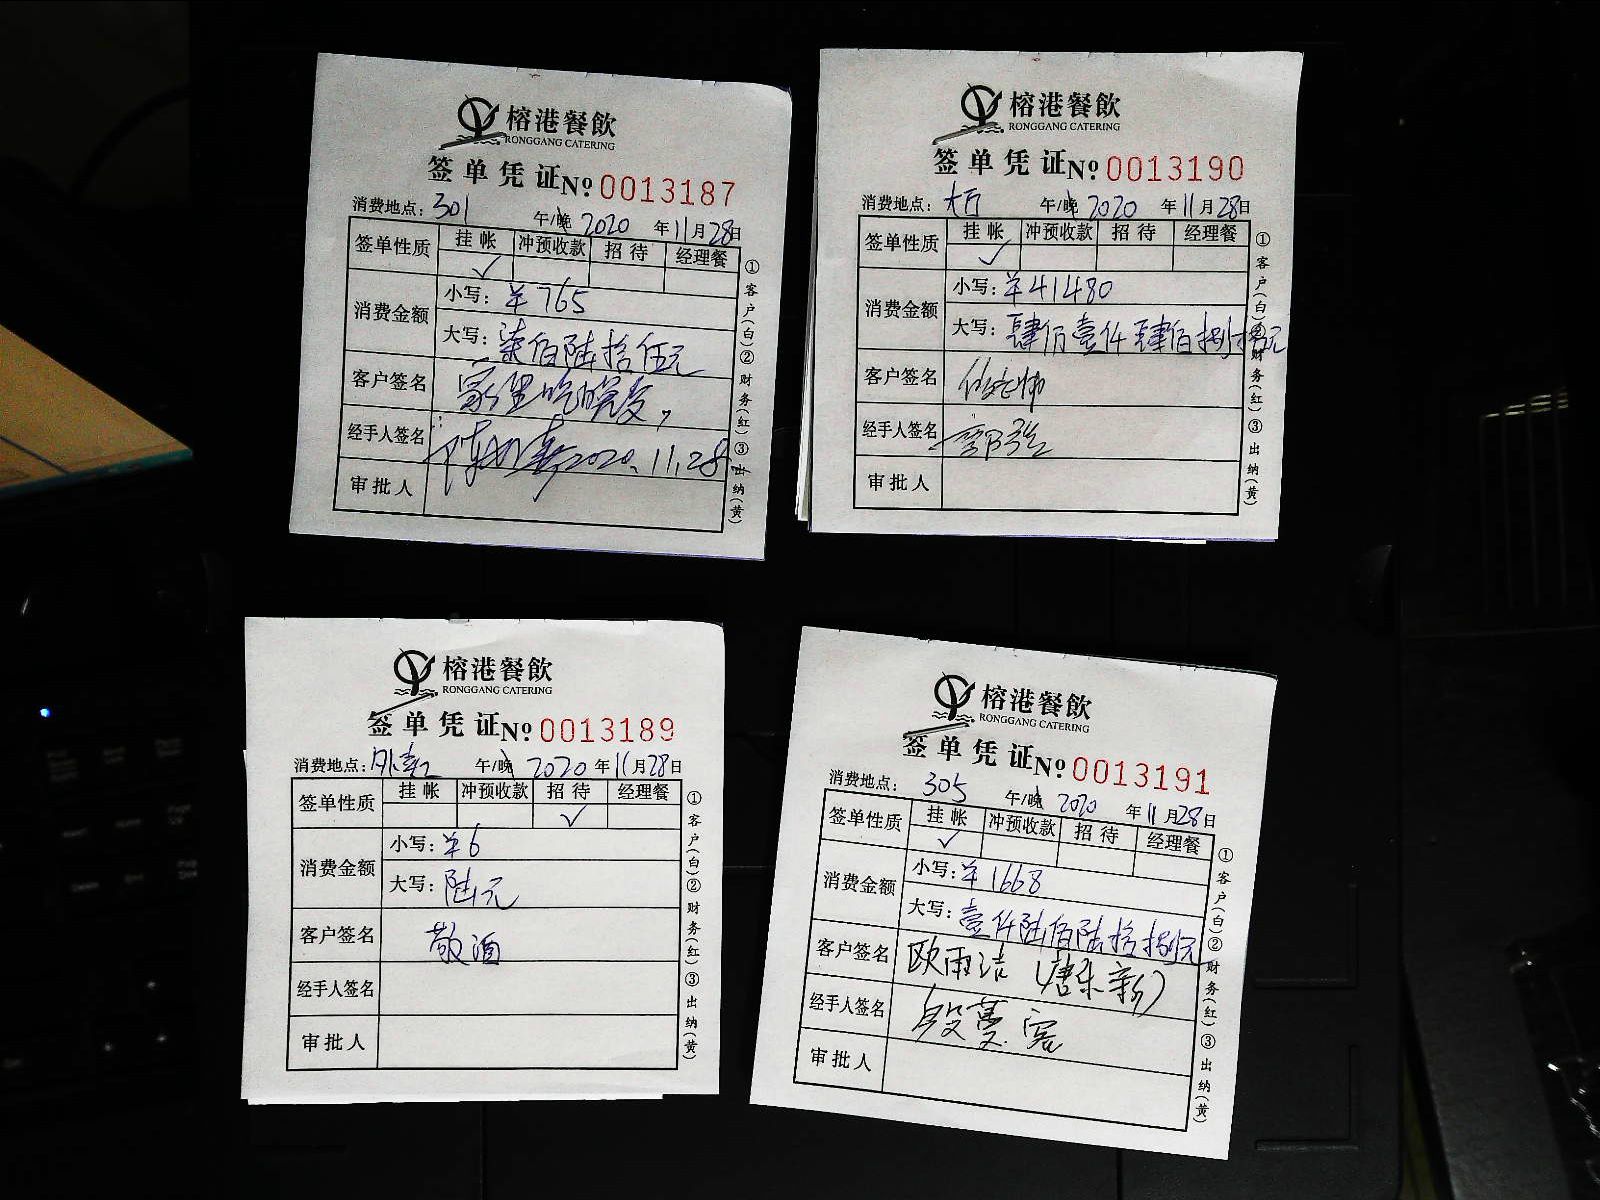 榕港餐飲
RONGGANG CATERING
签单凭证№ 0013187
消费地点: 301 午/晚 2020 年 11 月 28 日
签单性质 挂帐 冲预收款 招待 经理餐
✓
消费金额
小写: ¥765
大写: 柒佰陆拾伍元
客户签名 家里吃晚饭,
经手人签名 2020.11.28
审批人
①客户(白)②财务(红)③出纳(黄)
榕港餐飲
RONGGANG CATERING
签单凭证№ 0013190
消费地点: 大厅 午/晚 2020 年 11 月 28 日
签单性质 挂帐 冲预收款 招待 经理餐
✓
消费金额
小写: ¥41480
大写: 肆万壹仟肆佰捌拾元
客户签名
经手人签名
审批人
①客户(白)②财务(红)③出纳(黄)
榕港餐飲
RONGGANG CATERING
签单凭证№ 0013189
消费地点: 外卖 午/晚 2020 年 11 月 28 日
签单性质 挂帐 冲预收款 招待 经理餐
✓
消费金额
小写: ¥6
大写: 陆元
客户签名 敬酒
经手人签名
审批人
①客户(白)②财务(红)③出纳(黄)
榕港餐飲
RONGGANG CATERING
签单凭证№ 0013191
消费地点: 305 午/晚 2020 年 11 月 28 日
签单性质 挂帐 冲预收款 招待 经理餐
✓
消费金额
小写: ¥1668
大写: 壹仟陆佰陆拾捌元
客户签名 欧雨洁(唐乐新)
经手人签名 段蔓容
审批人
①客户(白)②财务(红)③出纳(黄)